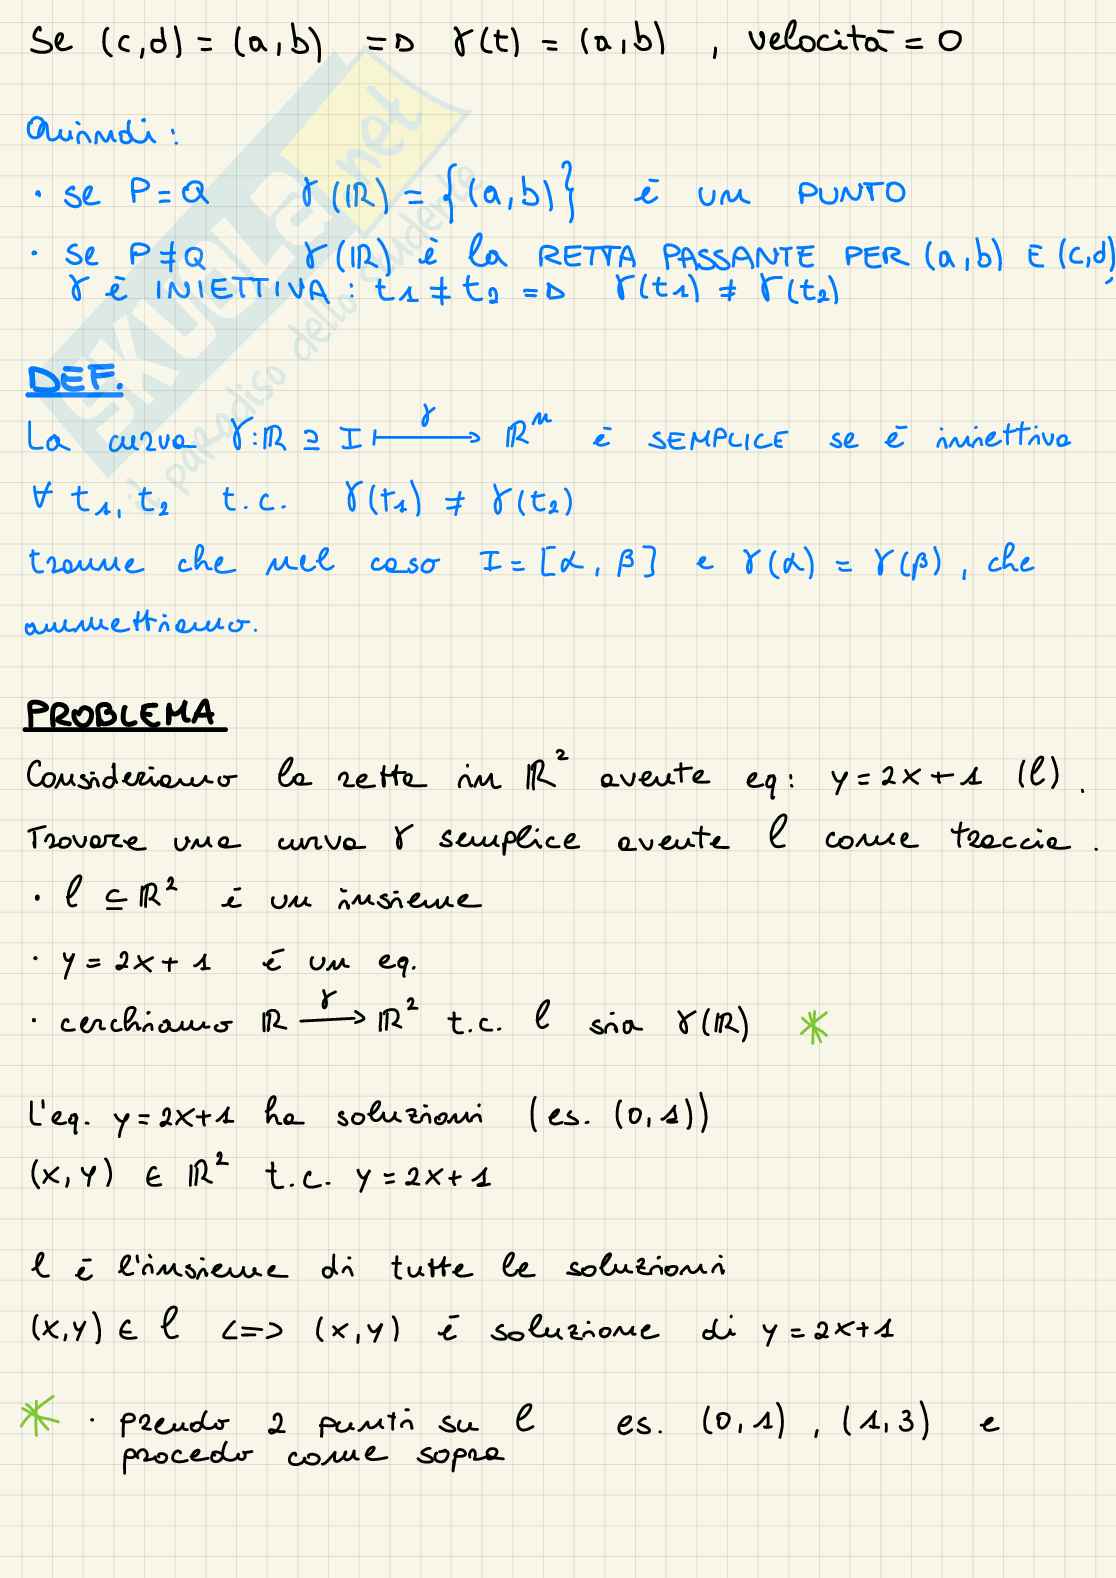 Se (c,d) = (a,b) => γ(t) = (a,b) , velocità = 0
Quindi:
• se P = Q γ(ℝ) = {(a,b)} è un PUNTO
• se P ≠ Q γ(ℝ) è la RETTA PASSANTE PER (a,b) E (c,d),
γ è INIETTIVA: t₁ ≠ t₂ => γ(t₁) ≠ γ(t₂)
DEF.
La curva γ: ℝ ⊇ I ⟼ ℝⁿ è SEMPLICE se è iniettiva
γ
∀ t₁, t₂ t.c. γ(t₁) ≠ γ(t₂)
tranne che nel caso I = [α, β] e γ(α) = γ(β), che
ammettiamo.
PROBLEMA
Consideriamo la retta in ℝ² avente eq: y = 2x + 1 (l).
Trovare una curva γ semplice avente l come traccia.
• l ⊆ ℝ² è un insieme
• y = 2x + 1 è un eq.
• cerchiamo ℝ ⟶ ℝ² t.c. l sia γ(ℝ) *
γ
L'eq. y = 2x+1 ha soluzioni (es. (0,1))
(x,y) ∈ ℝ² t.c. y = 2x+1
l è l'insieme di tutte le soluzioni
(x,y) ∈ l <=> (x,y) è soluzione di y = 2x+1
* • prendo 2 punti su l es. (0,1), (1,3) e
procedo come sopra
SKUOLA.net
il paradiso dello studente